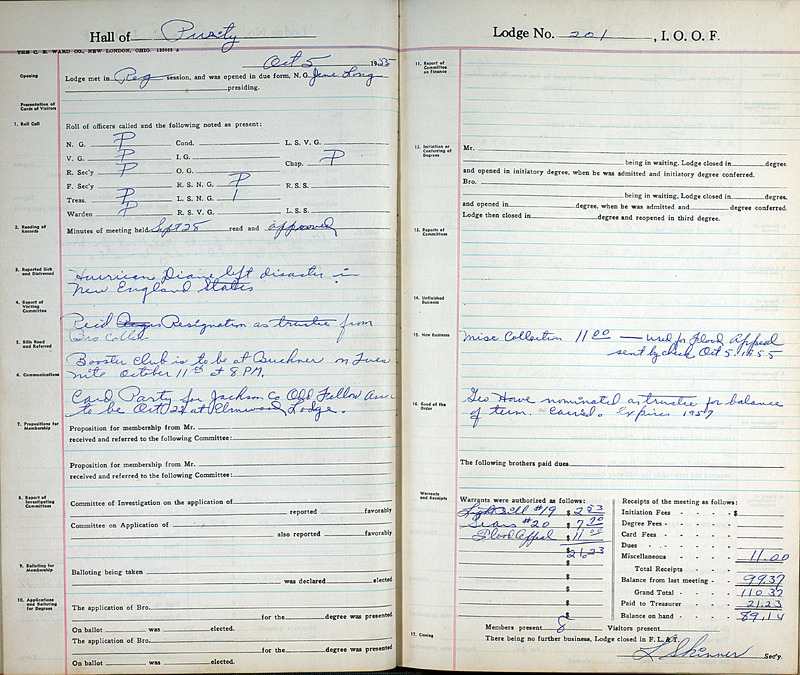 Hall of Purity
THE C. E. WARD CO., NEW LONDON, OHIO.
Oct 5 1955
Opening
Lodge met in Reg session, and was opened in due form, N. G. Gene Long
presiding.
Presentation of Cards of Visitors
1. Roll Call
Roll of officers called and the following noted as present:
N. G. P Cond. L. S. V. G.
V. G. P I. G. Chap. P
R. Sec'y P O. G.
F. Sec'y R. S. N. G. P R. S. S.
Treas. P L. S. N. G. 1
Warden P R. S. V. G. L. S. S.
2. Reading of Records
Minutes of meeting held Sept 28 read and approved
3. Reported Sick and Distressed
Hurricane Diane left disaster in
New England States
4. Report of Visiting Committee
Resignation as trustee from
Geo.
5. Bills Read and Referred
Booster Club is to be at Buckner on Tues
nite October 11th at 8 P.M.
6. Communications
Card Party for Jackson Co Odd Fellow
to be Oct 22 at Elmwood Lodge.
7. Propositions for Membership
Proposition for membership from Mr.
received and referred to the following Committee:
Proposition for membership from Mr.
received and referred to the following Committee:
8. Report of Investigating Committees
Committee of Investigation on the application of
reported favorably
Committee on Application of
also reported favorably
9. Balloting for Membership
Balloting being taken
was declared elected
10. Applications and Balloting for Degrees
The application of Bro.
for the degree was presented
On ballot was elected.
The application of Bro.
for the degree was presented
On ballot was elected.
Lodge No. 201, I. O. O. F.
11. Report of Committee on Finance
12. Initiation or Conferring of Degrees
Mr.
being in waiting, Lodge closed in degree,
and opened in initiatory degree, when he was admitted and initiatory degree conferred.
Bro.
being in waiting, Lodge closed in degree,
and opened in degree, when he was admitted and degree conferred.
Lodge then closed in degree and reopened in third degree.
13. Reports of Committees
14. Unfinished Business
15. New Business
Misc Collection 11 00 — used for Flood Appeal
sent by check Oct 5, 1955
16. Good of the Order
Geo Howe nominated as trustee for balance
of term. Carried. Expires 1957
The following brothers paid dues
Warrants and Receipts
Warrants were authorized as follows:
Light Bill #19 $ 2 93
Sears #20 $ 7 30
Flood Appeal $ 11 00
$ 21.23
$
$
$
$
$
Receipts of the meeting as follows:
Initiation Fees $
Degree Fees
Card Fees
Dues
Miscellaneous 11.00
Total Receipts
Balance from last meeting 99.37
Grand Total 110 37
Paid to Treasurer 21.23
Balance on hand 89.14
Members present 8 Visitors present
17. Closing
There being no further business, Lodge closed in F. L. & T.
L Skinner Sec'y.